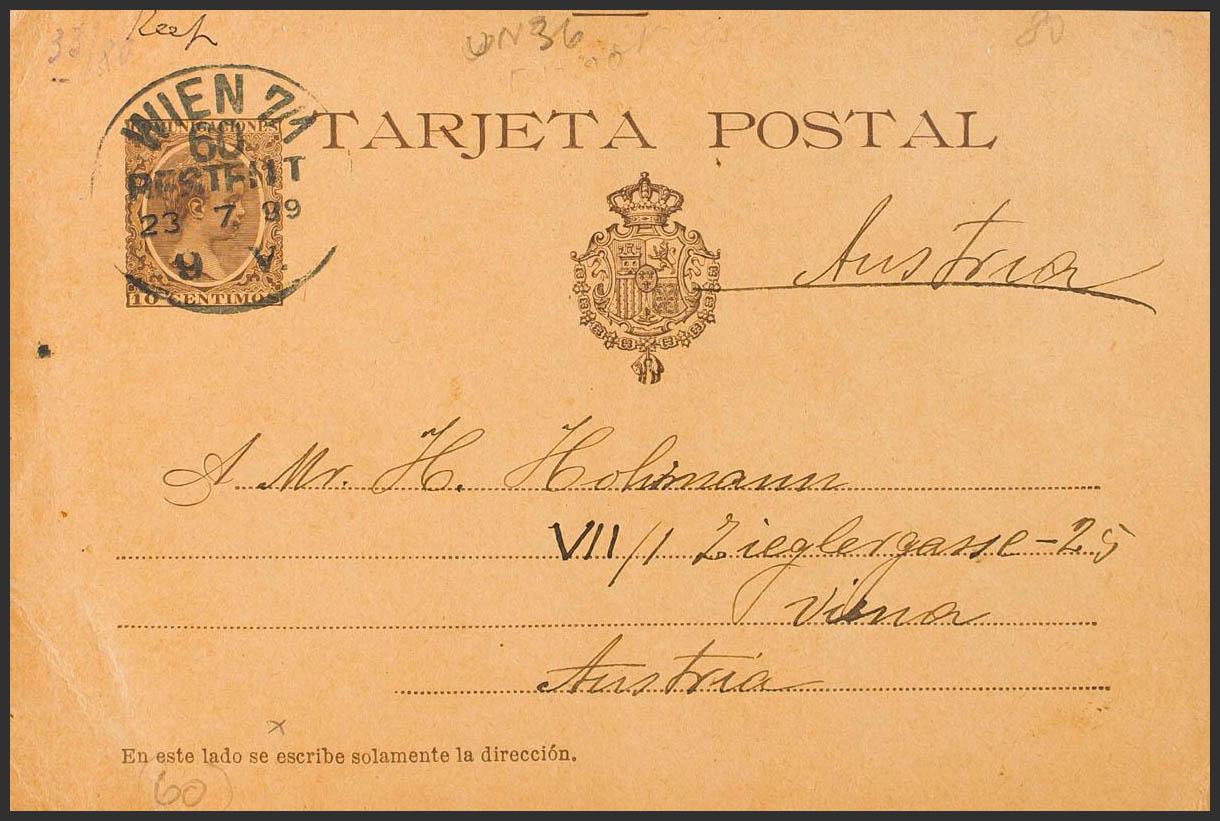 33/80
60N36
80
WIEN 7/1
60
BESTELLT
23 7 99
9 V.
COMUNICACIONES
10 CENTIMOS
TARJETA POSTAL
Austria
A Mr. H. Hohrmann
VII/1 Zieglergasse-25
Viena
Austria
x
En este lado se escribe solamente la dirección.
60